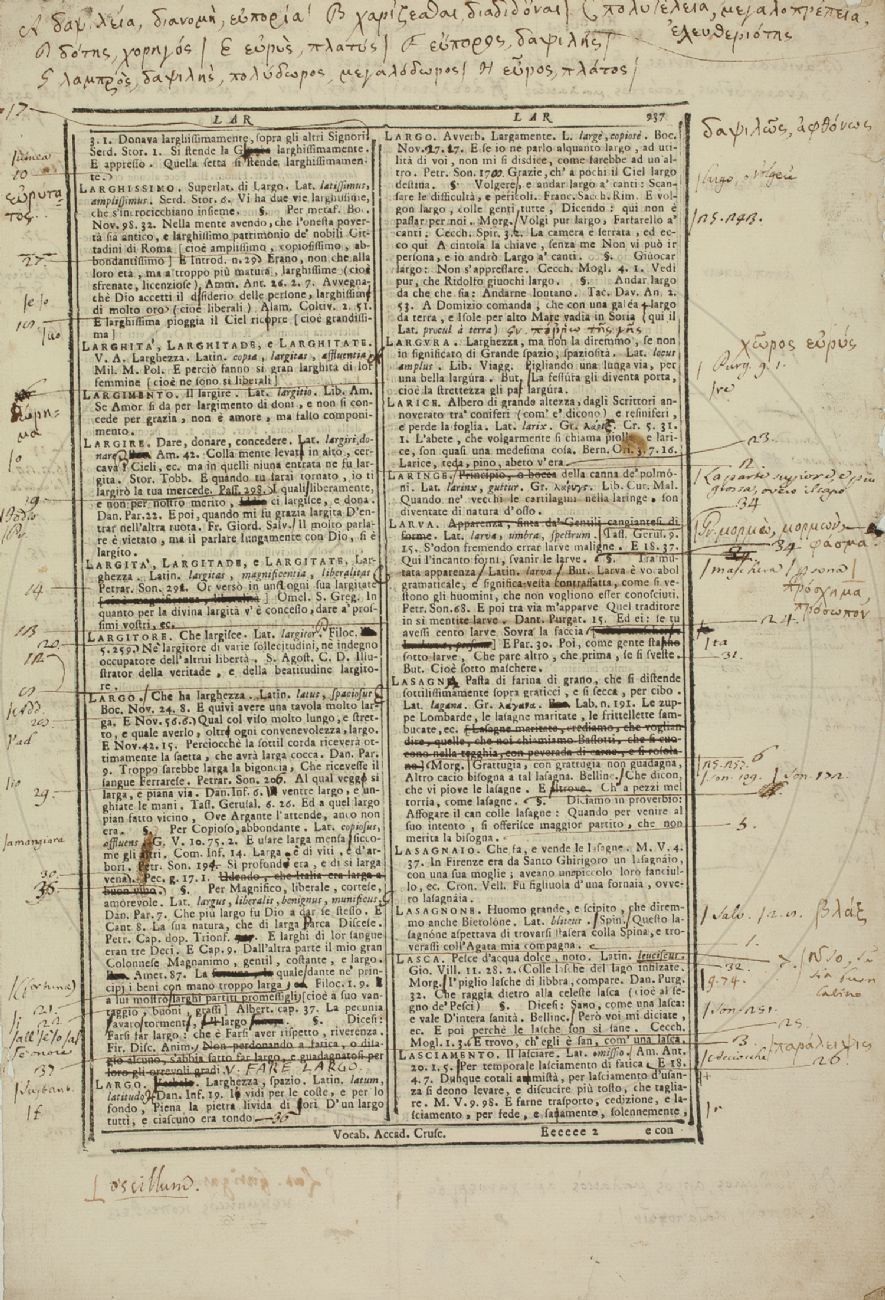 A δαψίλεια, διανομή, εὐπορία B χαρίζεσθαι, διαδιδόναι C πολυτέλεια, μεγαλοπρέπεια,
D δότης, χορηγός E εὐρὺς, πλατύς F εὔπορος, δαψιλής ἐλευθεριότης
G λαμπρὸς, δαψιλής, πολύδωρος, μεγαλόδωρος H εὖρος, πλάτος
17
LAR
3. 1. Donava larghissimamente, sopra gli altri Signori.
Serd. Stor. 1. Si stende la larghissimamente.
E appresso. Quella setta si stende, larghissimamen-
te.
LARGHISSIMO. Superlat. di Largo. Lat. latissimus,
amplissimus. Serd. Stor. 6. Vi ha due vie larghissime,
che s'incrocicchiano insieme. §. Per metaf. Boc.
Nov. 98. 32. Nella mente avendo, che l'onesta pover-
tà sia antico, e larghissimo patrimonio de' nobili Cit-
tadini di Roma [cioè amplissimo, copiosissimo, ab-
bondantissimo] E Introd. n. 29. Erano, non che alla
loro età, ma a troppo più matura, larghissime (cioè
sfrenate, licenziose), Amm. Ant. 26. 2. 7. Avvegna-
chè Dio accetti il disiderio delle persone, larghissime
di molto oro (cioè liberali) Alam. Coltiv. 2. 51.
E larghissima pioggia il Ciel ricopre [cioè grandissi-
ma]
LARGHITÀ, LARGHITADE, e LARGHITATE.
V. A. Larghezza. Latin. copia, largitas, affluentia.
Mil. M. Pol. E perciò fanno sì gran larghità di lor
femmine [cioè ne sono sì liberali]
LARGIMENTO. Il largire. Lat. largitio. Lib. Am.
Se Amor si dà per largimento di doni, e non si con-
cede per grazia, non è amore, ma falso componi-
mento.
LARGIRE. Dare, donare, concedere. Lat. largiri, do-
nare. Am. 42. Colla mente levata in alto, cer-
cava i Cieli, ec. ma in quelli niuna entrata ne fu lar-
gita. Stor. Tobb. E quando tu sarai tornato, io ti
largirò la tua mercede. Pass. 298. I quali liberamente,
e non per nostro merito, ci largisce, e dona.
Dan. Par. 22. E poi, quando mi fu grazia largita D'en-
trar nell'altra ruota. Fr. Giord. Salv. Il molto parla-
re è vietato, ma il parlare lungamente con Dio, sì è
largito.
LARGITÀ, LARGITADE, e LARGITATE, Lar-
ghezza. Latin. largitas, magnificentia, liberalitas
Petrar. Son. 291. Or verso in unstogni sua largitate
Omel. S. Greg. In
quanto per la divina largità v'è concesso, date a' pros-
simi vostri, ec.
LARGITORE. Che largisce. Lat. largitor. Filoc.
5. 259. Nè largitore di varie sollecitudini, nè indegno
occupatore dell'altrui libertà. S. Agost. C. D. Illu-
strator della veritade, e della beatitudine largito-
re.
LARGO. Che ha larghezza. Latin. latus, spaciosus
Boc. Nov. 24. 8. E quivi avere una tavola molto lar-
ga. E Nov. 56. 6. Qual col viso molto lungo, e stret-
to, e quale averlo, oltre ogni convenevolezza, largo.
E Nov. 42. 15. Perciocchè la sottil corda riceverà ot-
timamente la saetta, che avrà larga cocca. Dan. Par.
9. Troppo sarebbe larga la bigoncia, Che ricevesse il
sangue Ferrarese. Petrar. Son. 206. Al qual veggo sì
larga, e piana via. Dan. Inf. 6. ventre largo, e un-
ghiate le mani. Tass. Gerusal. 6. 26. Ed a quel largo
pian fatto vicino, Ove Argante l'attende, anco non
era. §. Per Copioso, abbondante. Lat. copiosus,
affluens. G. V. 10. 75. 2. E usare larga mensa, sicco-
me gli altri. Com. Inf. 14. Larga e di viti, e d'ar-
bori. Petr. Son. 194. Sì profondo era, e di sì larga
vena. Pec. g. 17. 1. Udendo, che Italia era larga a
buon vino. §. Per Magnifico, liberale, cortese,
amorevole. Lat. largus, liberalis, benignus, munificus.
Dan. Par. 7. Che più largo fu Dio a dar se stesso. E
Cant 8. La sua natura, che di larga Parca Discese.
Petr. Cap. dop. Trionf. E larghi di lor sangue
eran tre Decj. E Cap. 9. Dall'altra parte il mio gran
Colonnese Magnanimo, gentil, costante, e largo.
Amet. 87. La quale dante ne' prin-
cipj i beni con mano troppo larga, Filoc. 1. 9.
a lui mostrò larghi partiti promessigli (cioè a suo van-
taggio, buoni, grassi] Albert. cap. 37. La pecunia
§. Dicesi:
Farsi far largo; che è Farsi aver rispetto, riverenza.
Fir. Disc. Anim. Non perdonando a fatica, o disa-
gio alcuno, s'abbia fatto far largo, e guadagnatosi per
loro gli orrevoli gradi V. FARE LARGO.
LARGO. Larghezza, spazio. Latin. latum,
latitudo. Dan. Inf. 19. Io vidi per le coste, e per lo
fondo, Piena la pietra livida di fori D'un largo
tutti, e ciascuno era tondo.
LAR 237
LARGO. Avverb. Largamente. L. largè, copiosè. Boc.
Nov. 27. 17. E se io ne parlo alquanto largo, ad uti-
lità di voi, non mi si disdice, come farebbe ad un'al-
tro. Petr. Son. 170. Grazie, ch'a pochi il Ciel largo
destina. §. Volgere, e andar largo a' canti: Scan-
sare le difficultà, e pericoli. Franc. Sacch. Rim. E vol-
gon largo, colle genti tutte, Dicendo: qui non è
passar per noi. Morg. Volgi pur largo, Farfarello a'
canti. Cecch. Spir. 3. 2. La camera è serrata, ed ec-
co qui A cintola la chiave, senza me Non vi può ir
persona, e io andrò Largo a' canti. §. Giuocar
largo: Non s'appressare. Cecch. Mogl. 4. 1. Vedi
pur, che Ridolfo giuochi largo. §. Andar largo
da che che sia: Andarne lontano. Tac. Dav. An. 2.
53. A Domizio comanda, che con una galéa largo
da terra, e Isole per alto Mare vadia in Soria (qui il
Lat. procul à terra) Gr. πόῤῥω τῆς γῆς
LARGURA. Larghezza, ma non la diremmo, se non
in significato di Grande spazio, spaziosità. Lat. locus
amplus. Lib. Viagg. Pigliando una lunga via, per
una bella largura. But. La fessura gli diventa porta,
cioè la strettezza gli par largura.
LARICE. Albero di grande altezza, dagli Scrittori an-
noverato tra' coniferi (com' e' dicono) e resiniferi,
e perde la foglia. Lat. larix. Gr. λάριξ. Cr. 5. 31.
1. L'abete, che volgarmente si chiama e lari-
ce, son quasi una medesima cosa. Bern. Orl. 3. 7. 16.
Larice, teda, pino, abeto v'era.
LARINGE. Principio, o bocca della canna de' polmó-
ni. Lat. larinx, guttur. Gr. λάρυγξ. Lib. Cur. Mal.
Quando ne' vecchi le cartilagini nella laringe son
diventate di natura d'osso.
LARVA. Apparenza, finta da' Gentili cangiantesi di
forme. Lat. larva, umbra, spectrum. Tass. Gerus. 9.
15. S'odon fremendo errar larve maligne. E 18. 37.
Qui l'incanto fornì, svanir le larve. §. Tra mu-
tata apparenza. Latin. larva. But. Larva è vocabol
gramaticale, e significa vesta contraffatta, come si ve-
stono gli huomini, che non vogliono esser conosciuti.
Petr. Son. 68. E poi tra via m'apparve Quel traditore
in sì mentite larve. Dant. Purgat. 15. Ed ei: se tu
avessi cento larve Sovra la faccia
E Par. 30. Poi, come gente stata
sotto larve, Che pare altro, che prima, se si sveste.
But. Cioè sotto maschere.
LASAGNA. Pasta di farina di grano, che si distende
sottilissimamente sopra graticci, e si secca, per cibo.
Lat. lagana. Gr. λάγανα. Lab. n. 191. Le zup-
pe Lombarde, le lasagne maritate, le frittellette sam-
bucate, ec. (Lasagne maritate, crediamo, che voglian
dire, quelle, che noi chiamiamo Bastotti, che si cuo-
cono nella tegghia, con peverada di carne, e si rosola-
no) Morg. Grattugia, con grattugia non guadagna,
Altro cacio bisogna a tal lasagna. Bellinc. Che dicon,
che vi piove le lasagne. E altrove. Ch' a pezzi mel
torria, come lasagne. §. Diciamo in proverbio:
Affogare il can colle lasagne: Quando per venire al
suo intento, si offerisce maggior partito, che non
merita la bisogna.
LASAGNAIO. Che fa, e vende le lasagne. M. V. 4.
37. In Firenze era da Santo Ghirigoro un lasagnaio,
con una sua moglie; aveano unpiccolo loro fanciul-
lo, ec. Cron. Vell. Fu figliuola d'una fornaia, ovve-
ro lasagnaia.
LASAGNONE. Huomo grande, e scipito, che direm-
mo anche Bietolone. Lat. bliteus. Spin. Questo la-
sagnone aspettava di trovarsi stasera colla Spina, e tro-
verassi coll'Agata mia compagna.
LASCA. Pesce d'acqua dolce, noto. Latin. leuciscus.
Gio. Vill. 11. 28. 2. (Colle lasche del lago infilzate.
Morg. I piglio lasche di libbra, compare. Dan. Purg.
32. Che raggia dietro alla celeste lasca (cioè al se-
gno de' Pesci) §. Dicesi: Sano, come una lasca:
e vale D'intera sanità. Bellinc. Però voi mi diciate,
ec. E poi perchè le lasche son sì sane. Cecch.
Mogl. 1. 3. E trovo, ch'egli è san, com' una lasca.
LASCIAMENTO. Il lasciare. Lat. omissio. Am. Ant.
20. 1. 5. Per temporale lasciamento di fatica. E 18.
4. 7. Dunque cotali ammistà, per lasciamento d'usan-
za si deono levare, e discucire più tosto, che taglia-
re. M. V. 9. 98. E farne trasporto, cedizione, e la-
sciamento, per fede, e saramento, solennemente,
Vocab. Accad. Crusc. Eeeeee 2 e con
10
εὐρύτα-
τος.
27
19
14
113
20.
29.
30.
36.
21.
22
37
δαψιλῶς, ἀφθόνως
largo, o volgere
χῶρος εὐρύς
Purg. 9. 1.
23.
2.
34
Gr. μορμὼ, μορμών,
φάσμα
34
maschera persona
πρόσχημα,
πρόσωπον
24.
ta
31.
6
Son. 109. Son. 102.
3.
Salv. βλάξ
1.
32.
g. 74.
Son. 251.
25.
3. παράλειψις
26.
oscillum.